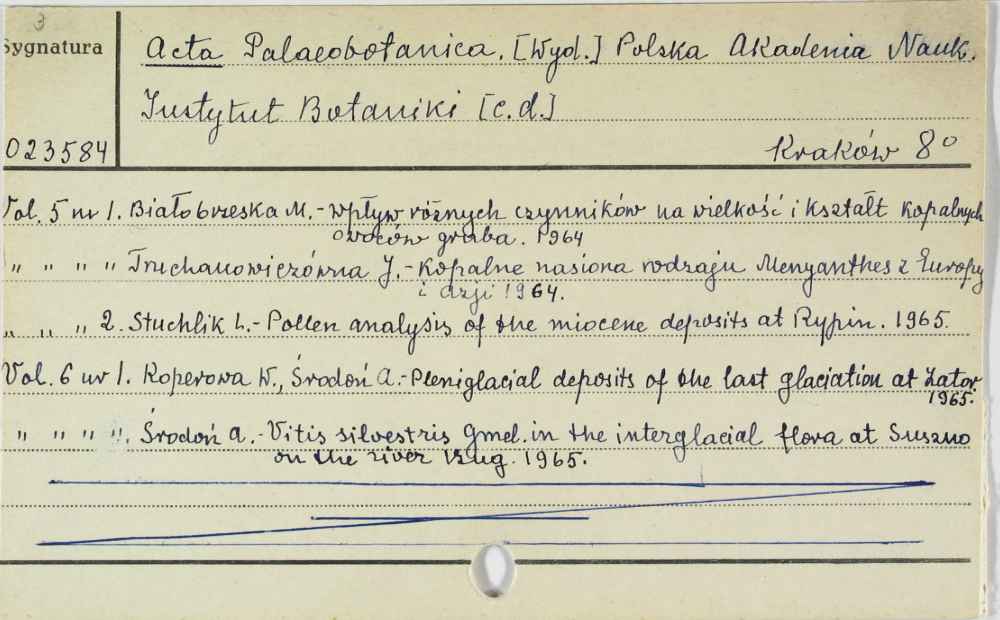 3
Sygnatura
Acta Palaeobotanica. [Wyd.] Polska Akademia Nauk.
Instytut Botaniki [c.d.]
023584
Kraków 8°
Vol. 5 nr 1. Białobrzeska M. - Wpływ różnych czynników na wielkość i kształt kopalnych
owoców graba. 1964
" " " " Truchanowiczówna J. - Kopalne nasiona rodzaju Menyanthes z Europy
i Azji 1964.
" " " 2. Stuchlik L. - Pollen analysis of the miocene deposits at Rypin. 1965.
Vol. 6 nr 1. Koperowa W., Środoń A. - Pleniglacial deposits of the last glaciation at Zator.
1965.
" " " ". Środoń A. - Vitis silvestris Gmel. in the interglacial flora at Suszno
on the river Bug. 1965.